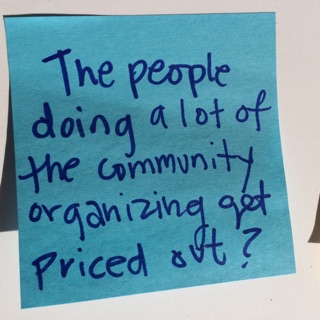 The people
doing a lot of
the community
organizing get
priced out?